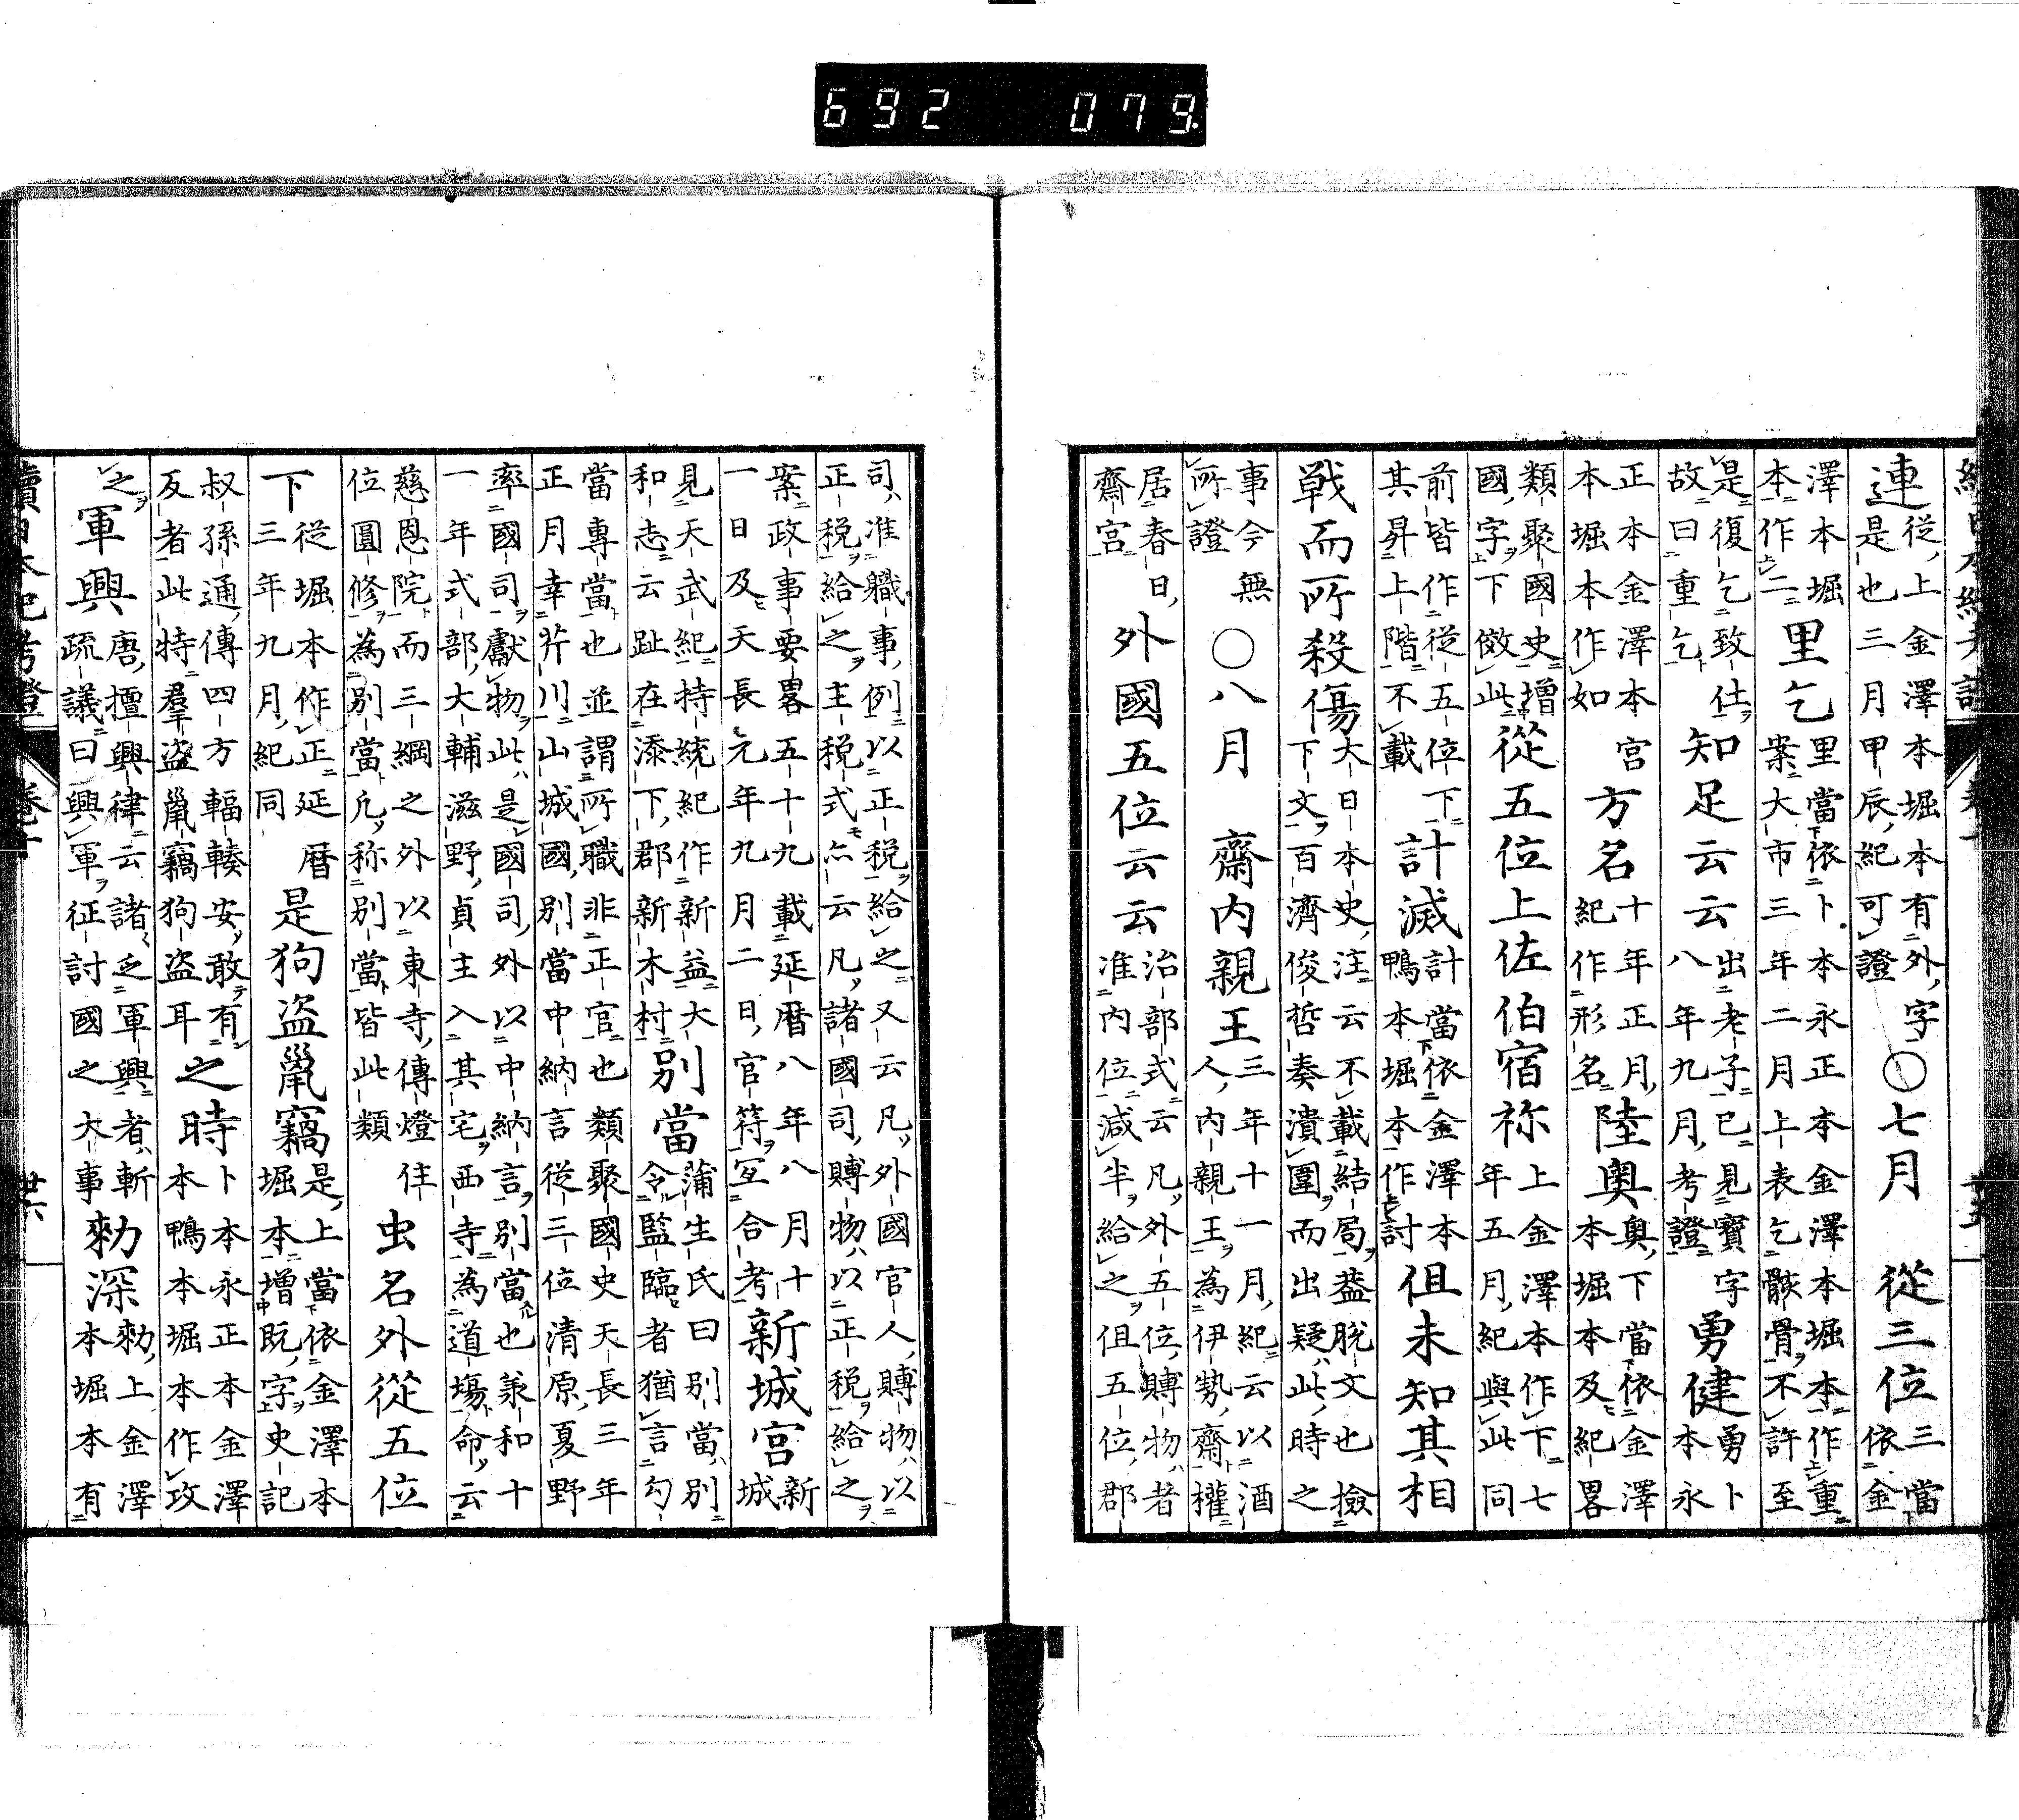 692 079
連從上金澤本堀本有外字是也三月甲辰紀可證○七月 從三位三當依金
澤本堀本作二里乞里當依卜本永正本金澤本堀本作重案大市三年二月上表乞骸骨不許至
是復乞致仕故曰重乞知足云云出老子已見寶字八年九月考證勇健勇卜本永
正本金澤本宮本堀本作如方名十年正月紀作形名陸奥奥下當依金澤本堀本及紀畧
類聚國史増國字下倣此從五位上佐伯宿祢上金澤本作下七年五月紀與此同
前皆作從五位下其昇上階不載計滅計當依金澤本鴨本堀本作討但未知其相
戰而所殺傷大日本史注云不載結局蓋脱文也撿下文百濟俊哲奏潰圍而出疑此時之
事今無所證○八月 齋内親王三年十一月紀云以酒人内親王為伊勢齋權
居春日齋宮外國五位云云治部式云凡外五位賻物者准内位減半給之但五位郡
司准職事例以正税給之又云凡外國官人賻物以正税給之主税式亦云凡諸國司賻物以正税給之
案政事要畧五十九載延暦八年八月十一日及天長元年九月二日官符宜合考新城宮新城
見天武紀持統紀作新益大和志云趾在添下郡新木村別當蒲生氏曰別當別令監臨者猶言勾
當專當也並謂所職非正官也類聚國史天長三年正月幸芹川山城國別當中納言從三位清原夏野
率國司獻物此是國司外以中納言別當也兼和十一年式部大輔滋野貞主入其宅西寺為道塲命云
慈恩院而三綱之外以東寺傳燈住位圓修為別當凡称別當皆此類虫名外從五位
下從堀本作正延暦三年九月紀同是狗盗鼠竊是上當依金澤本堀本増既字史記
叔孫通傳四方輻輳安敢有反者此特羣盗鼠竊狗盗耳之時卜本永正本金澤本鴨本堀本作攻
之軍興唐擅興律云諸乏軍興者斬疏議曰興軍征討國之大事勅深勅上金澤本堀本有
續日本紀考證 廿六